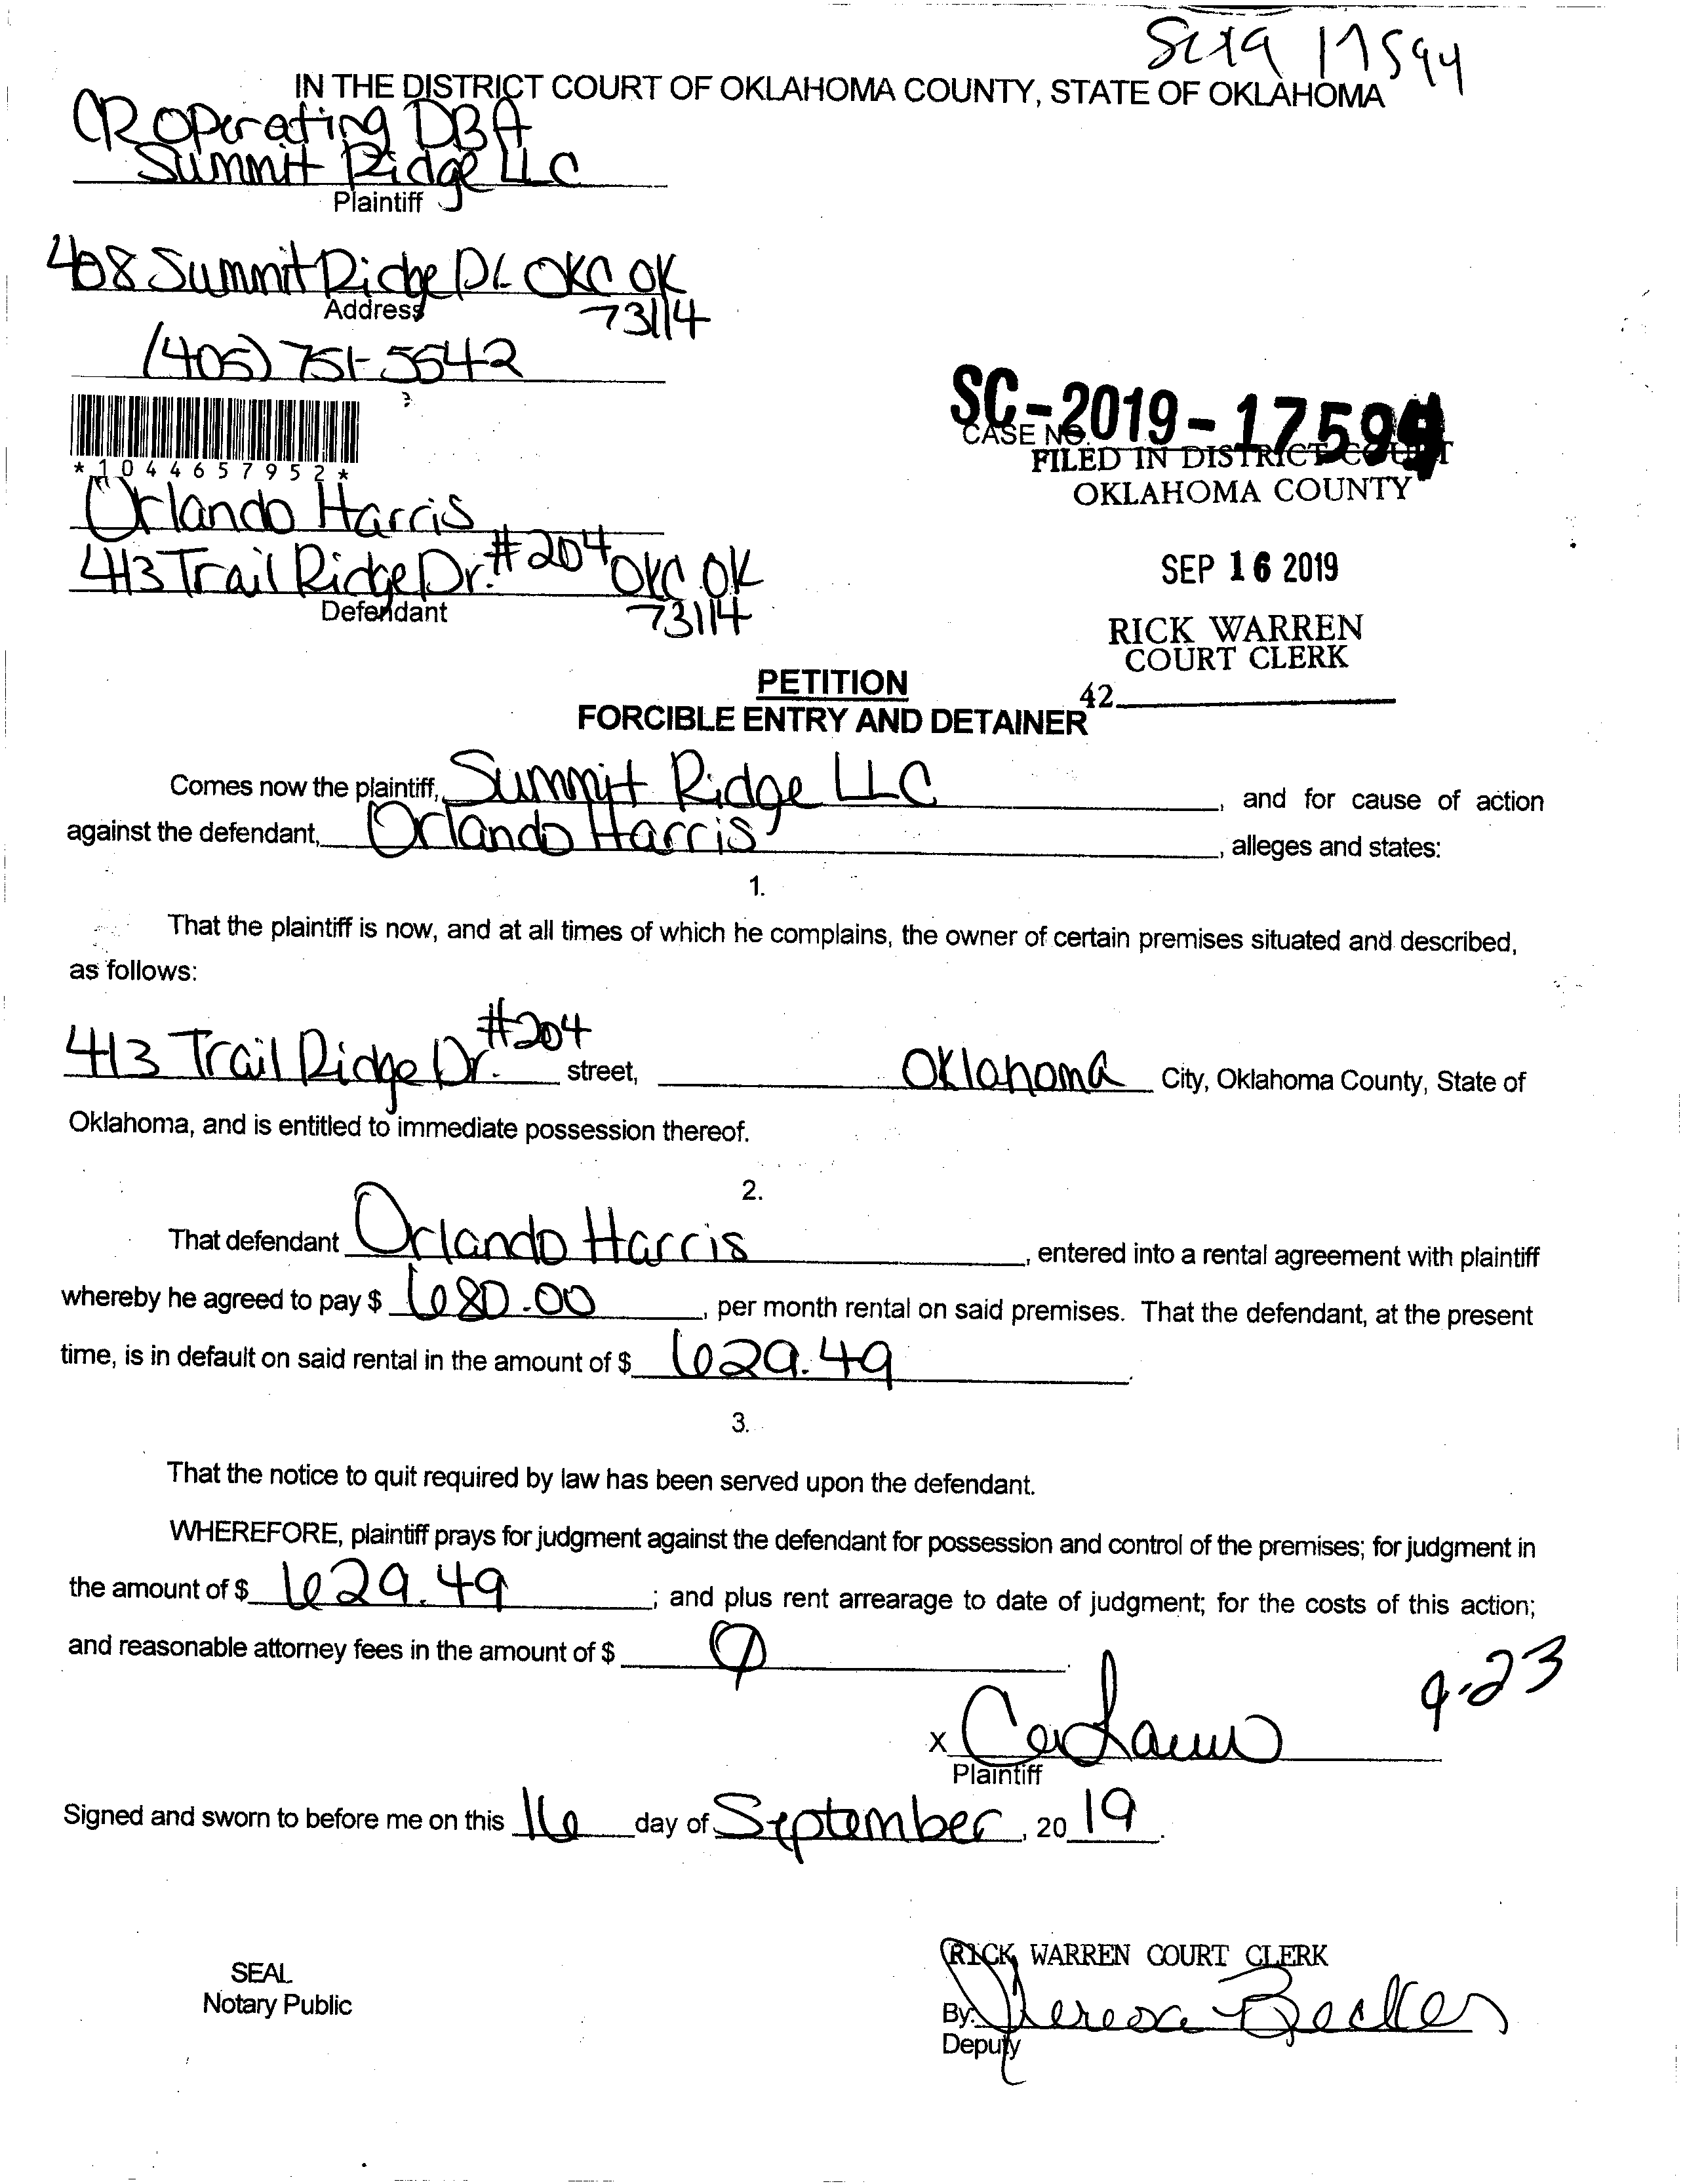 SC19 17594
IN THE DISTRICT COURT OF OKLAHOMA COUNTY, STATE OF OKLAHOMA
CR Operating DBA
Summit Ridge LLC
Plaintiff
408 Summit Ridge Dr. OKC OK
Address
73114
(405) 751-5542
SC-2019-17594
CASE NO.
FILED IN DISTRICT COURT
OKLAHOMA COUNTY
*1044657952*
Orlando Harris
413 Trail Ridge Dr. #204 OKC OK
Defendant
73114
SEP 16 2019
RICK WARREN
COURT CLERK
42
PETITION
FORCIBLE ENTRY AND DETAINER
Comes now the plaintiff, Summit Ridge LLC, and for cause of action
against the defendant, Orlando Harris, alleges and states:
1.
That the plaintiff is now, and at all times of which he complains, the owner of certain premises situated and described,
as follows:
413 Trail Ridge Dr. #204 street, Oklahoma City, Oklahoma County, State of
Oklahoma, and is entitled to immediate possession thereof.
2.
That defendant Orlando Harris, entered into a rental agreement with plaintiff
whereby he agreed to pay $ 680.00, per month rental on said premises. That the defendant, at the present
time, is in default on said rental in the amount of $ 629.49.
3.
That the notice to quit required by law has been served upon the defendant.
WHEREFORE, plaintiff prays for judgment against the defendant for possession and control of the premises; for judgment in
the amount of $ 629.49; and plus rent arrearage to date of judgment; for the costs of this action;
and reasonable attorney fees in the amount of $
9-23
X
Plaintiff
Signed and sworn to before me on this 16 day of September, 2019.
RICK WARREN COURT CLERK
SEAL
Notary Public
By: Theresa Becker
Deputy